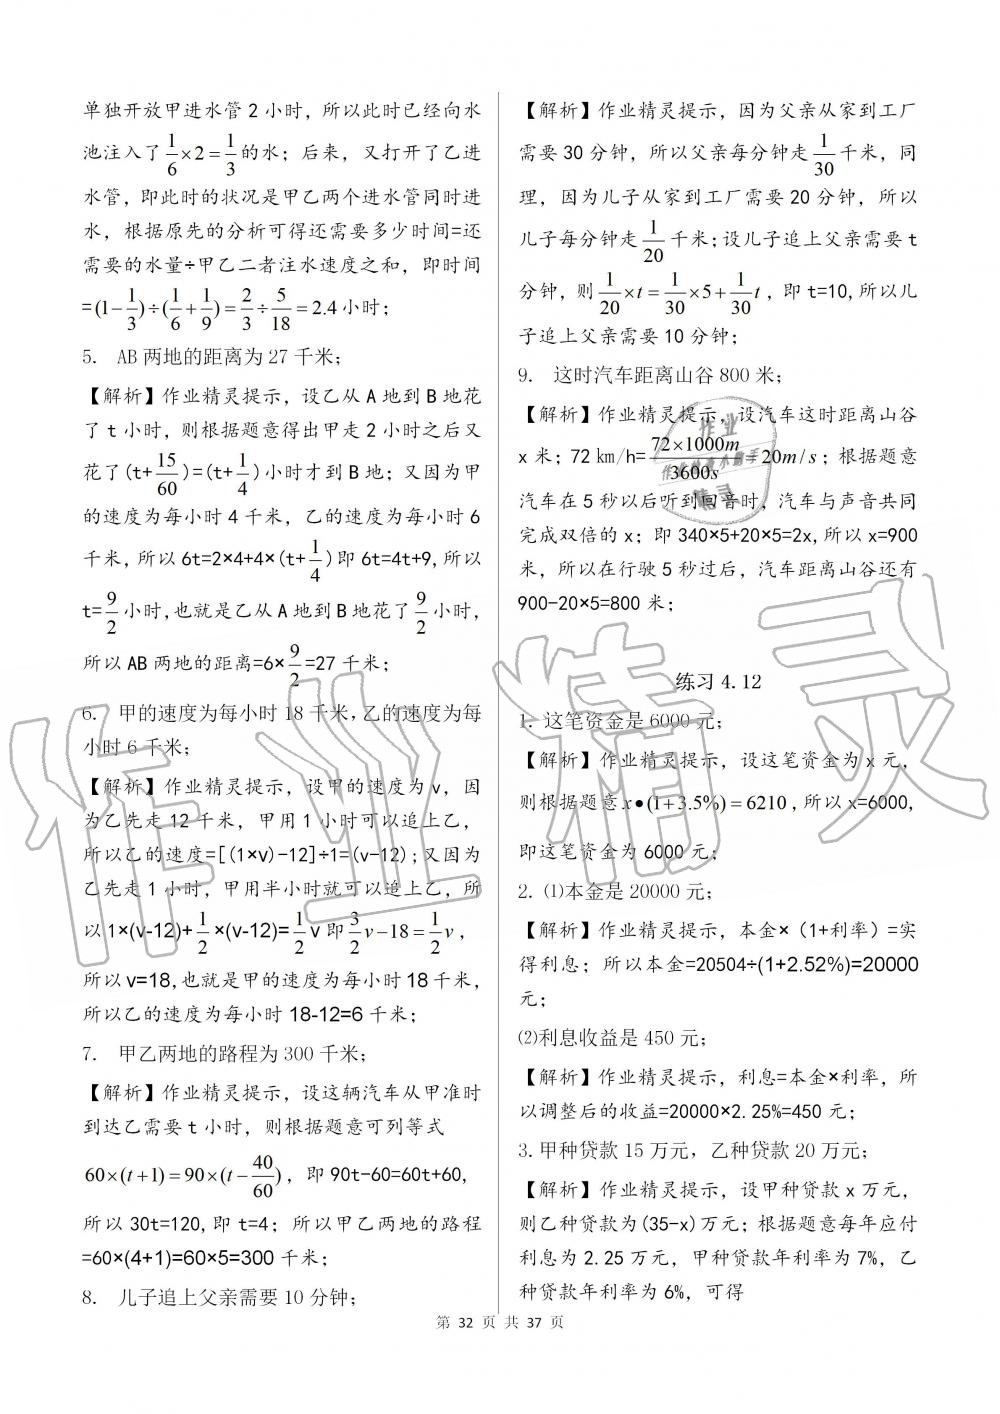 单独开放甲进水管2小时，所以此时已经向水
池注入了1/6×2=1/3的水；后来，又打开了乙进
水管，即此时的状况是甲乙两个进水管同时进
水，根据原先的分析可得还需要多少时间=还
需要的水量÷甲乙二者注水速度之和，即时间
=(1-1/3)÷(1/6+1/9)=2/3÷5/18=2.4小时；
5. AB两地的距离为27千米；
【解析】作业精灵提示，设乙从A地到B地花
了t小时，则根据题意得出甲走2小时之后又
花了(t+15/60)=(t+1/4)小时才到B地；又因为甲
的速度为每小时4千米，乙的速度为每小时6
千米，所以6t=2×4+4×(t+1/4)即6t=4t+9，所以
t=9/2小时，也就是乙从A地到B地花了9/2小时，
所以AB两地的距离=6×9/2=27千米；
6. 甲的速度为每小时18千米，乙的速度为每
小时6千米；
【解析】作业精灵提示，设甲的速度为v，因
为乙先走12千米，甲用1小时可以追上乙，
所以乙的速度=[(1×v)-12]÷1=(v-12)；又因为
乙先走1小时，甲用半小时就可以追上乙，所
以1×(v-12)+1/2×(v-12)=1/2v即3/2v-18=1/2v，
所以v=18，也就是甲的速度为每小时18千米，
所以乙的速度为每小时18-12=6千米；
7. 甲乙两地的路程为300千米；
【解析】作业精灵提示，设这辆汽车从甲准时
到达乙需要t小时，则根据题意可列等式
60×(t+1)=90×(t-40/60)，即90t-60=60t+60，
所以30t=120，即t=4；所以甲乙两地的路程
=60×(4+1)=60×5=300千米；
8. 儿子追上父亲需要10分钟；
【解析】作业精灵提示，因为父亲从家到工厂
需要30分钟，所以父亲每分钟走1/30千米，同
理，因为儿子从家到工厂需要20分钟，所以
儿子每分钟走1/20千米；设儿子追上父亲需要t
分钟，则1/20×t=1/30×5+1/30t，即t=10,所以儿
子追上父亲需要10分钟；
9. 这时汽车距离山谷800米；
【解析】作业精灵提示，设汽车这时距离山谷
x米；72km/h=72×1000m/3600s=20m/s；根据题意
汽车在5秒以后听到回音时，汽车与声音共同
完成双倍的x；即340×5+20×5=2x,所以x=900
米，所以在行驶5秒过后，汽车距离山谷还有
900-20×5=800米；
练习4.12
1. 这笔资金是6000元；
【解析】作业精灵提示，设这笔资金为x元，
则根据题意x•(1+3.5%)=6210，所以x=6000，
即这笔资金为6000元；
2. ⑴本金是20000元；
【解析】作业精灵提示，本金×（1+利率）=实
得利息；所以本金=20504÷(1+2.52%)=20000
元；
⑵利息收益是450元；
【解析】作业精灵提示，利息=本金×利率，所
以调整后的收益=20000×2.25%=450元；
3.甲种贷款15万元，乙种贷款20万元；
【解析】作业精灵提示，设甲种贷款x万元，
则乙种贷款为(35-x)万元；根据题意每年应付
利息为2.25万元，甲种贷款年利率为7%，乙
种贷款年利率为6%，可得
第 32 页 共 37 页
作业精灵